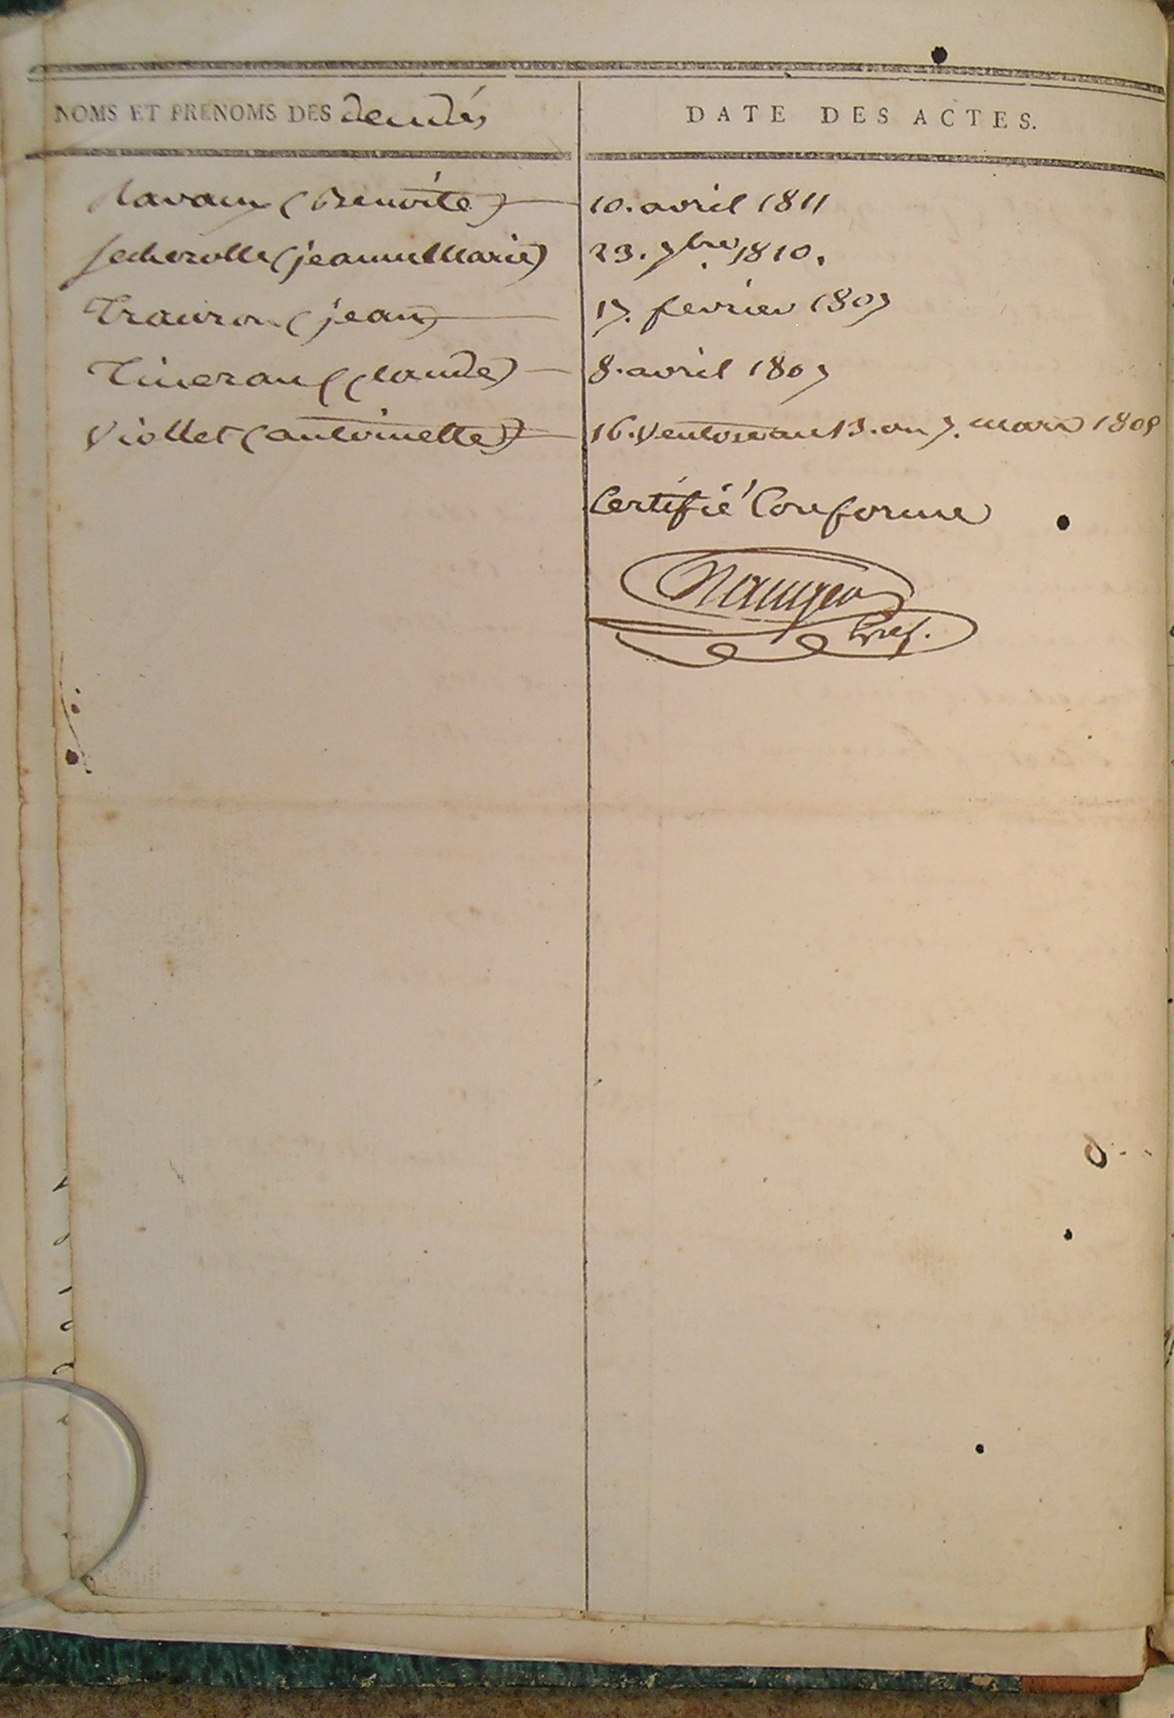 NOMS ET PRENOMS DES décédés DATE DES ACTES.
Ravaux (Benoite) 10. avril 1811
secherolle (jeanne Marie) 23. 7bre 1810.
(jean) 17. fevrier 1807
(Claude) 8. avril 1807
Viollet (antoinette) 16. Ventose an 13. ou 7. mars 1805
Certifié Conforme
Gref.